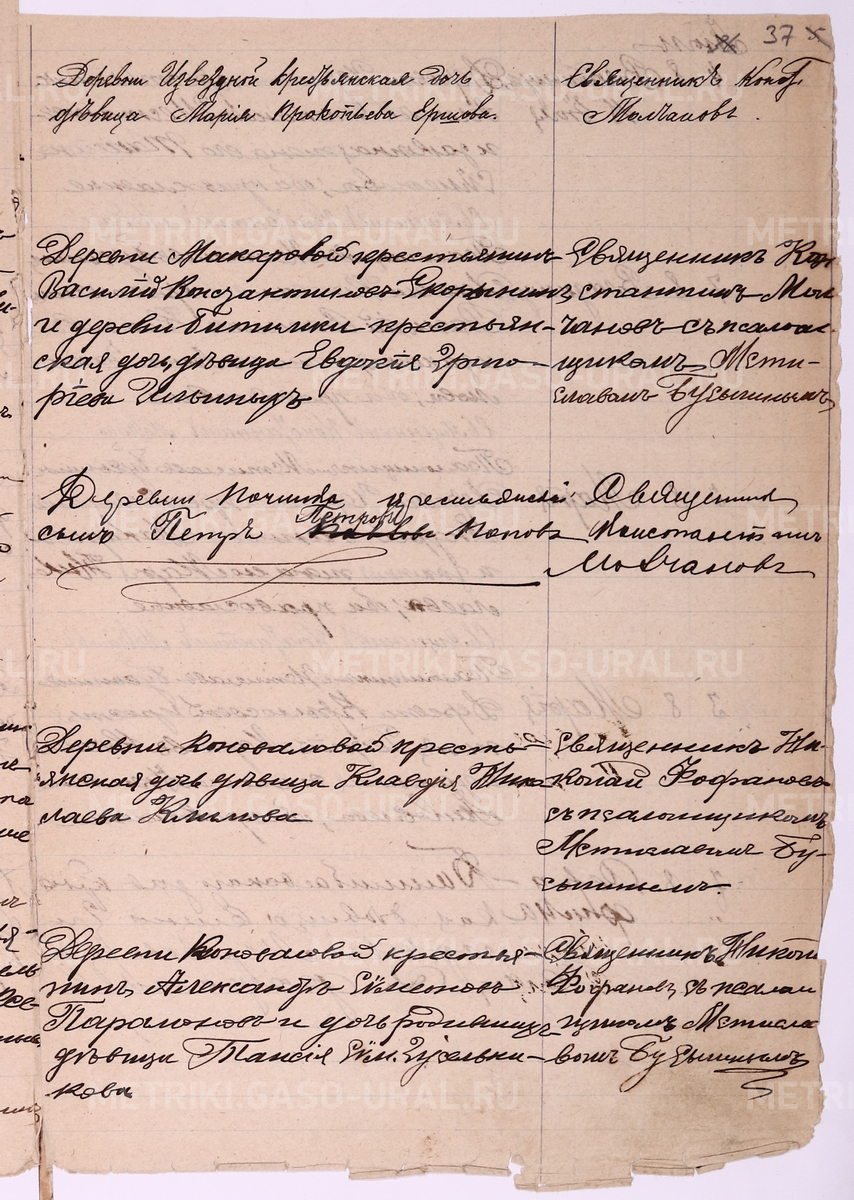 37
Деревни Извездной крестьянская дочь
дѣвица Марія Прокопьева Ершова.
Священникъ Конст.
Молчановъ.
Деревни Макаровой крестьянинъ
Василій Константиновъ Скорынинъ
и деревни Битимки крестьян-
ская дочь дѣвица Евдокія Григо-
рьева Ильиныхъ
Священникъ Кон-
стантинъ Мол-
чановъ съ псалом-
щикомъ Мсти-
славомъ Бусыгинымъ
Деревни Починка крестьянскій
сынъ Петръ Петровъ Поповъ
Священникъ
Константинъ
Молчановъ
Деревни Коноваловой кресть-
янская дочь дѣвица Клавдія Нико-
лаева Климова
Священникъ Ни-
колай Фофановъ
съ псаломщикомъ
Мстиславомъ Бу-
сыгинымъ.
Деревни Коноваловой крестья-
нинъ Александръ Симеоновъ
Парамоновъ и дочь
дѣвица Таисія Сим. Гусельни-
кова
Священникъ Никол.
Фофановъ съ псалом
щикомъ Мстисла
вомъ Бусыгинымъ
METRIKI.GASO-URAL.RU